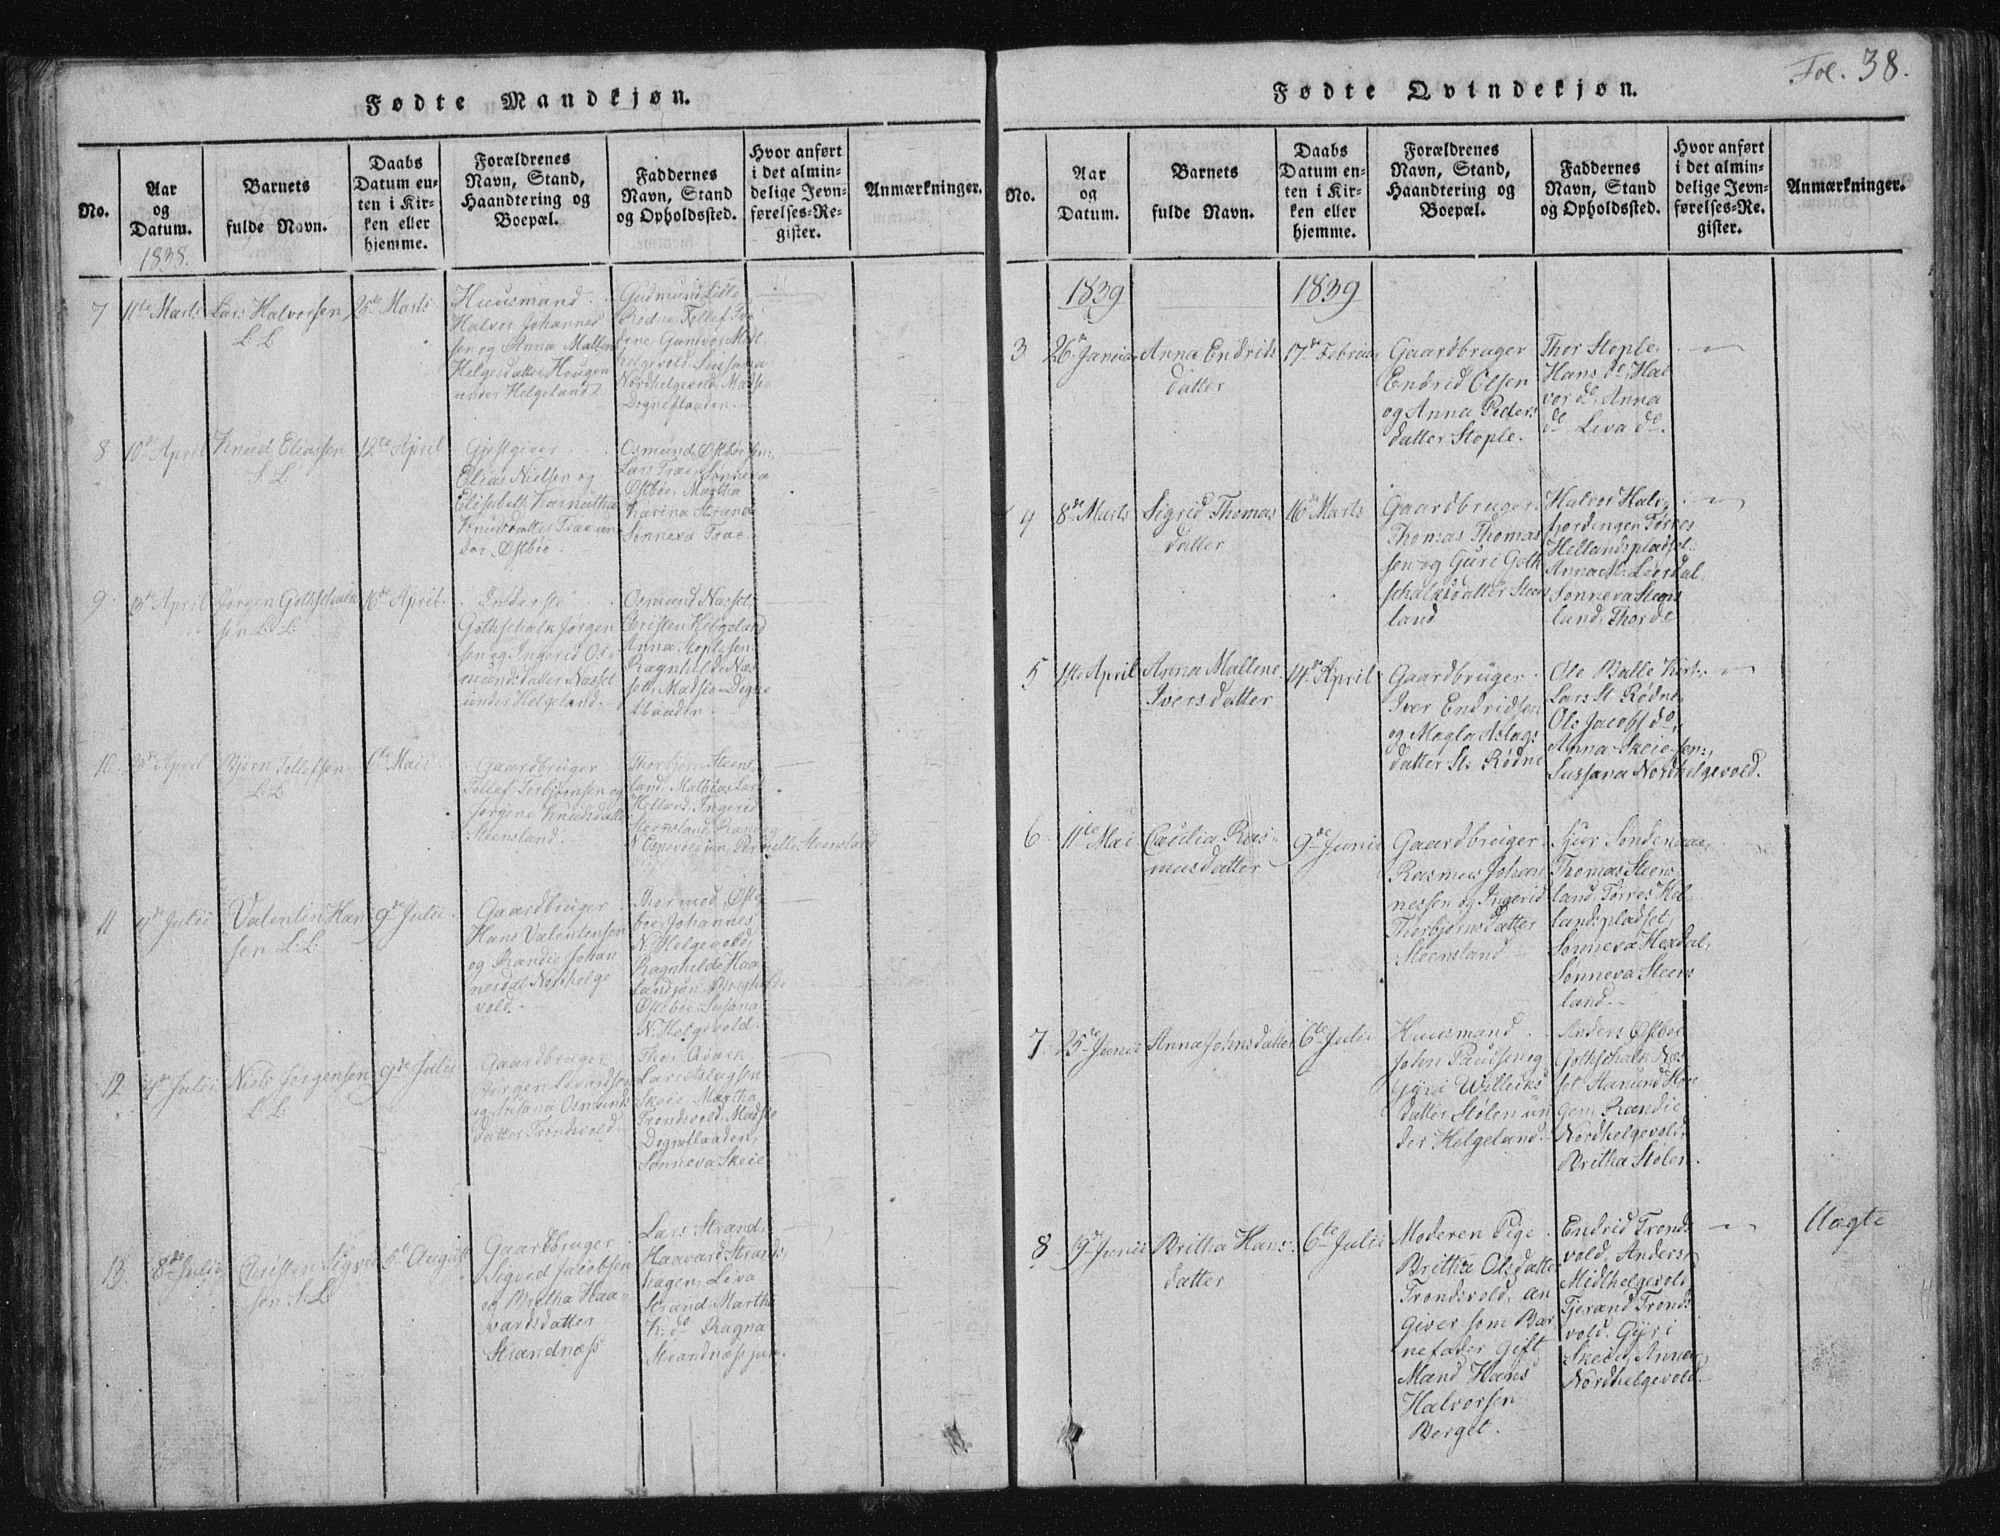 Fol. 38.
Fødte Mandkjøn.
No.
Aar
og
Datum.
Barnets
fulde Navn.
Daabs
Datum en-
ten i Kir-
ken eller
hjemme.
Forældrenes
Navn, Stand,
Haandtering og
Boepæl.
Faddernes
Navn, Stand
og Opholdssted.
Hvor anført
i det almin-
delige Jevn-
førelses-Re-
gister.
Anmærkninger.
1838.
7
11te Marts
Lars Halvorsen
L. L
25de Marts
Huusmand
Halvor Johannes
sen og Anna Mallen
Helgesdatter Hougen
under Helgeland
Gudmund Lille
Rødne Tollef
Gunvor
helgevold, Sussana
Nordhelgevold, Madsie
Dogneflaaden.
8
10de April
Knud Eliassen
S. L
12te April
Gjestgiver
Elias Nielsen og
Elisabeth Karnatha
Knudsdatter Trae un
der Østbøe
Osmund Østbøe sen:
Lars Trae, Sønneva
Østbøe, Martha
Karina Strand
Sønneva Trae.
9
April
Jørgen Gothschalk
sen L. L.
16de April
Inderste
Gothschalk Jørgen
sen og Ingerid Os-
mundsdatter Næsset
under Helgeland
Osmund Næsset
Christen Helgeland
Anna Stople sen:
Ragnhilde Næs
set, Madsie Dogne
flaaden.
10
April
Bjørn Tollefsen
L. L
6te Mai
Gaardbruger
Tollef Torbjørnsen og
Jørgine Knudsdatter
Steensland.
Thorbjørn Steens
land, Mathias Lars
Helland, Ingerid
Steensland,
Pernelle Steensland
11
4de Julii
Valentin Han
sen L. L.
9de Julii
Gaardbruger
Hans Valentensen
og Randie Johan
nesdat Nordhelge
vold.
Thormod Øst
boe, Johannes
N. Helgevold,
Ragnhilde Haa
land
Østboe, Susana
N. Helgevold.
12
4de Julii
Niels Jørgensen
L. L.
9de Julii
Gaardbruger
Jørgen
og Susana Osmunds
datter Trondsvold
Thor
Lars Aslagsen
Skeie, Martha
Trondsvold, Madsie
Dogneflaaden,
Sønneva Skeie
13.
8de Julii
Christen Sigved
sen S. L.
5te August
Gaardbruger
Sigved Jacobsen
og Britha Haa-
vardsdatter
Strandnæss
Lars Strand,
Haavard Strands
hagen, Liva
Strand, Martha
K. do Ragna
Strandnæss jun.
Fødte Qvindekjøn.
No.
Aar
og
Datum.
Barnets
fulde Navn.
Daabs
Datum en-
ten i Kir-
ken eller
hjemme.
Forældrenes
Navn, Stand,
Haandtering og
Boepæl.
Faddernes
Navn, Stand
og Opholdssted.
Hvor anført
i det almin-
delige Jevn-
førelses-Re-
gister.
Anmærkninger.
1839
1839
3
26de Januar
Anna Endrids
datter
17de Februar
Gaardbruger
Endrid Olsen
og Anna Peders
datter Stople.
Thor Stople,
Hans do, Hal
vor do, Anna
do Liva do.
4
8de Marts
Sigrid Thomas
datter
16de Marts
Gaardbruger
Thomas Thomas
sen og Guri Goth
schalksdatter Steens
land
Halvor Halv-
fjordingen, Tørres
Hellandspladset
Anna M. Leerdal,
Sønneva Steens
land, Thor do
5
1ste April
Anna Mallene
Iversdatter
14de April
Gaardbruger
Iver Endridsen
og Magla Aslags
datter St. Rødne
Ole Balle
Lars St. Rødne,
Ole Jacobs do,
Anna Skeie sen:,
Sussana Nordhelgevold.
6
11te Mai
Cæcilia Ras-
musdatter
9de Junii
Gaardbruger
Rasmus Johan
nessen og Ingerid
Thorbjørnsdatter
Steensland
Sjur Søndenaae,
Thomas Steens
land, Tørres Hel
landspladset,
Sønneva Hexdal,
Sønneva Steens
land.
7.
25de Junii
Anna Johnsdatter
6te Julii
Huusmand
John Paulsen og
Gyri Willicks
datter Stølen un
der Helgeland.
Anders Østboe
Gothschalk Næs
set Amund Hou
gen, Randie
Nordhelgevold,
Britha Stølen.
8
19de Junii
Britha Hans
datter
6te Julii
Moderen Pige
Britha Olsdatter
Trondsvold, an
giver som Bar
nefader Gift
Mand Hans
Halvorsen
Berget.
Endrid Tronds
vold, Anders
Midthelgevold
Tjerand Tronds
vold, Gyri
Skeie, Anna
Nordhelgevold.
Uægte